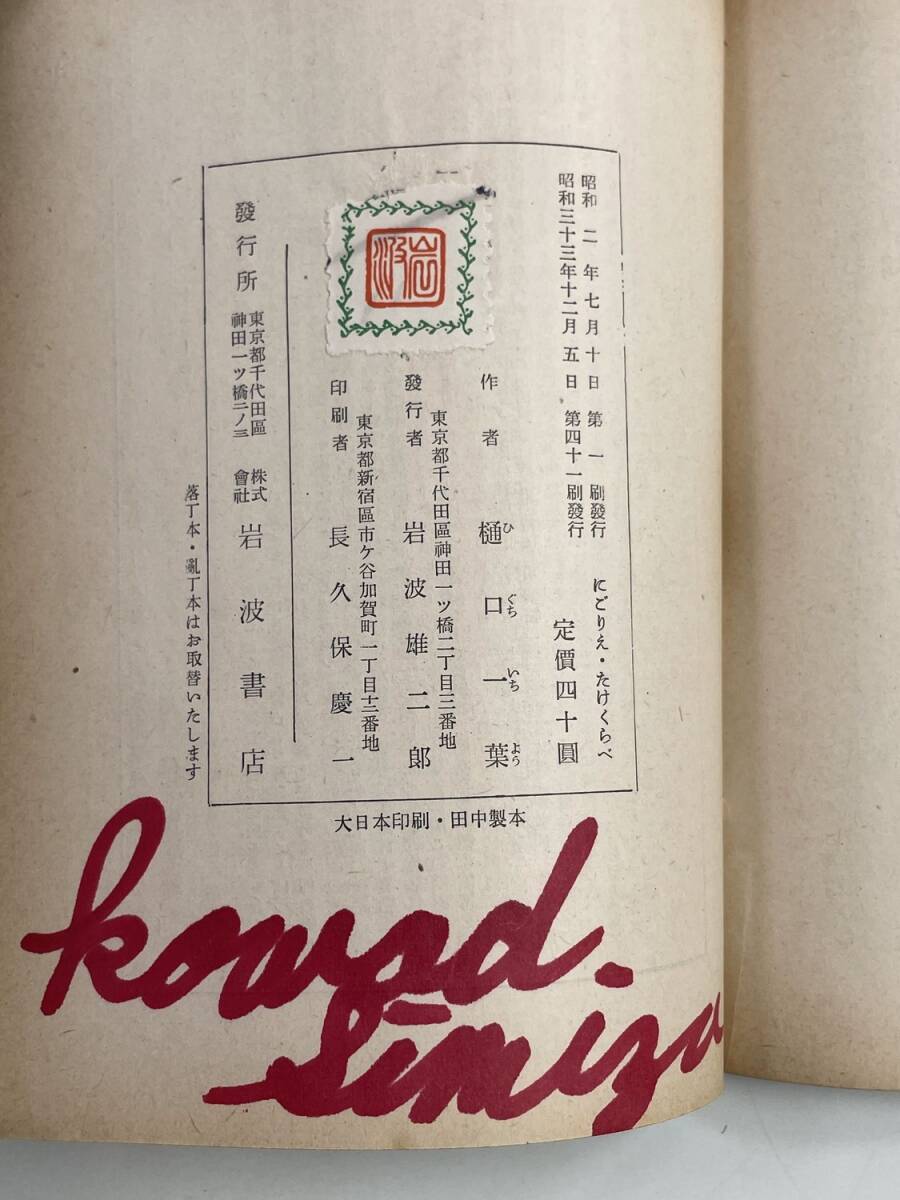 昭和二年七月十日 第一刷發行
昭和三十三年十二月五日 第四十一刷發行
にごりえ・たけくらべ
定價四十圓
作者 樋口一葉
ひぐちいちよう
東京都千代田區神田一ツ橋二丁目三番地
發行者 岩波雄二郎
東京都新宿區市ケ谷加賀町一丁目十二番地
印刷者 長久保慶一
岩波
發行所
東京都千代田區
神田一ツ橋二ノ三
株式
會社
岩波書店
落丁本・亂丁本はお取替いたします
大日本印刷・田中製本